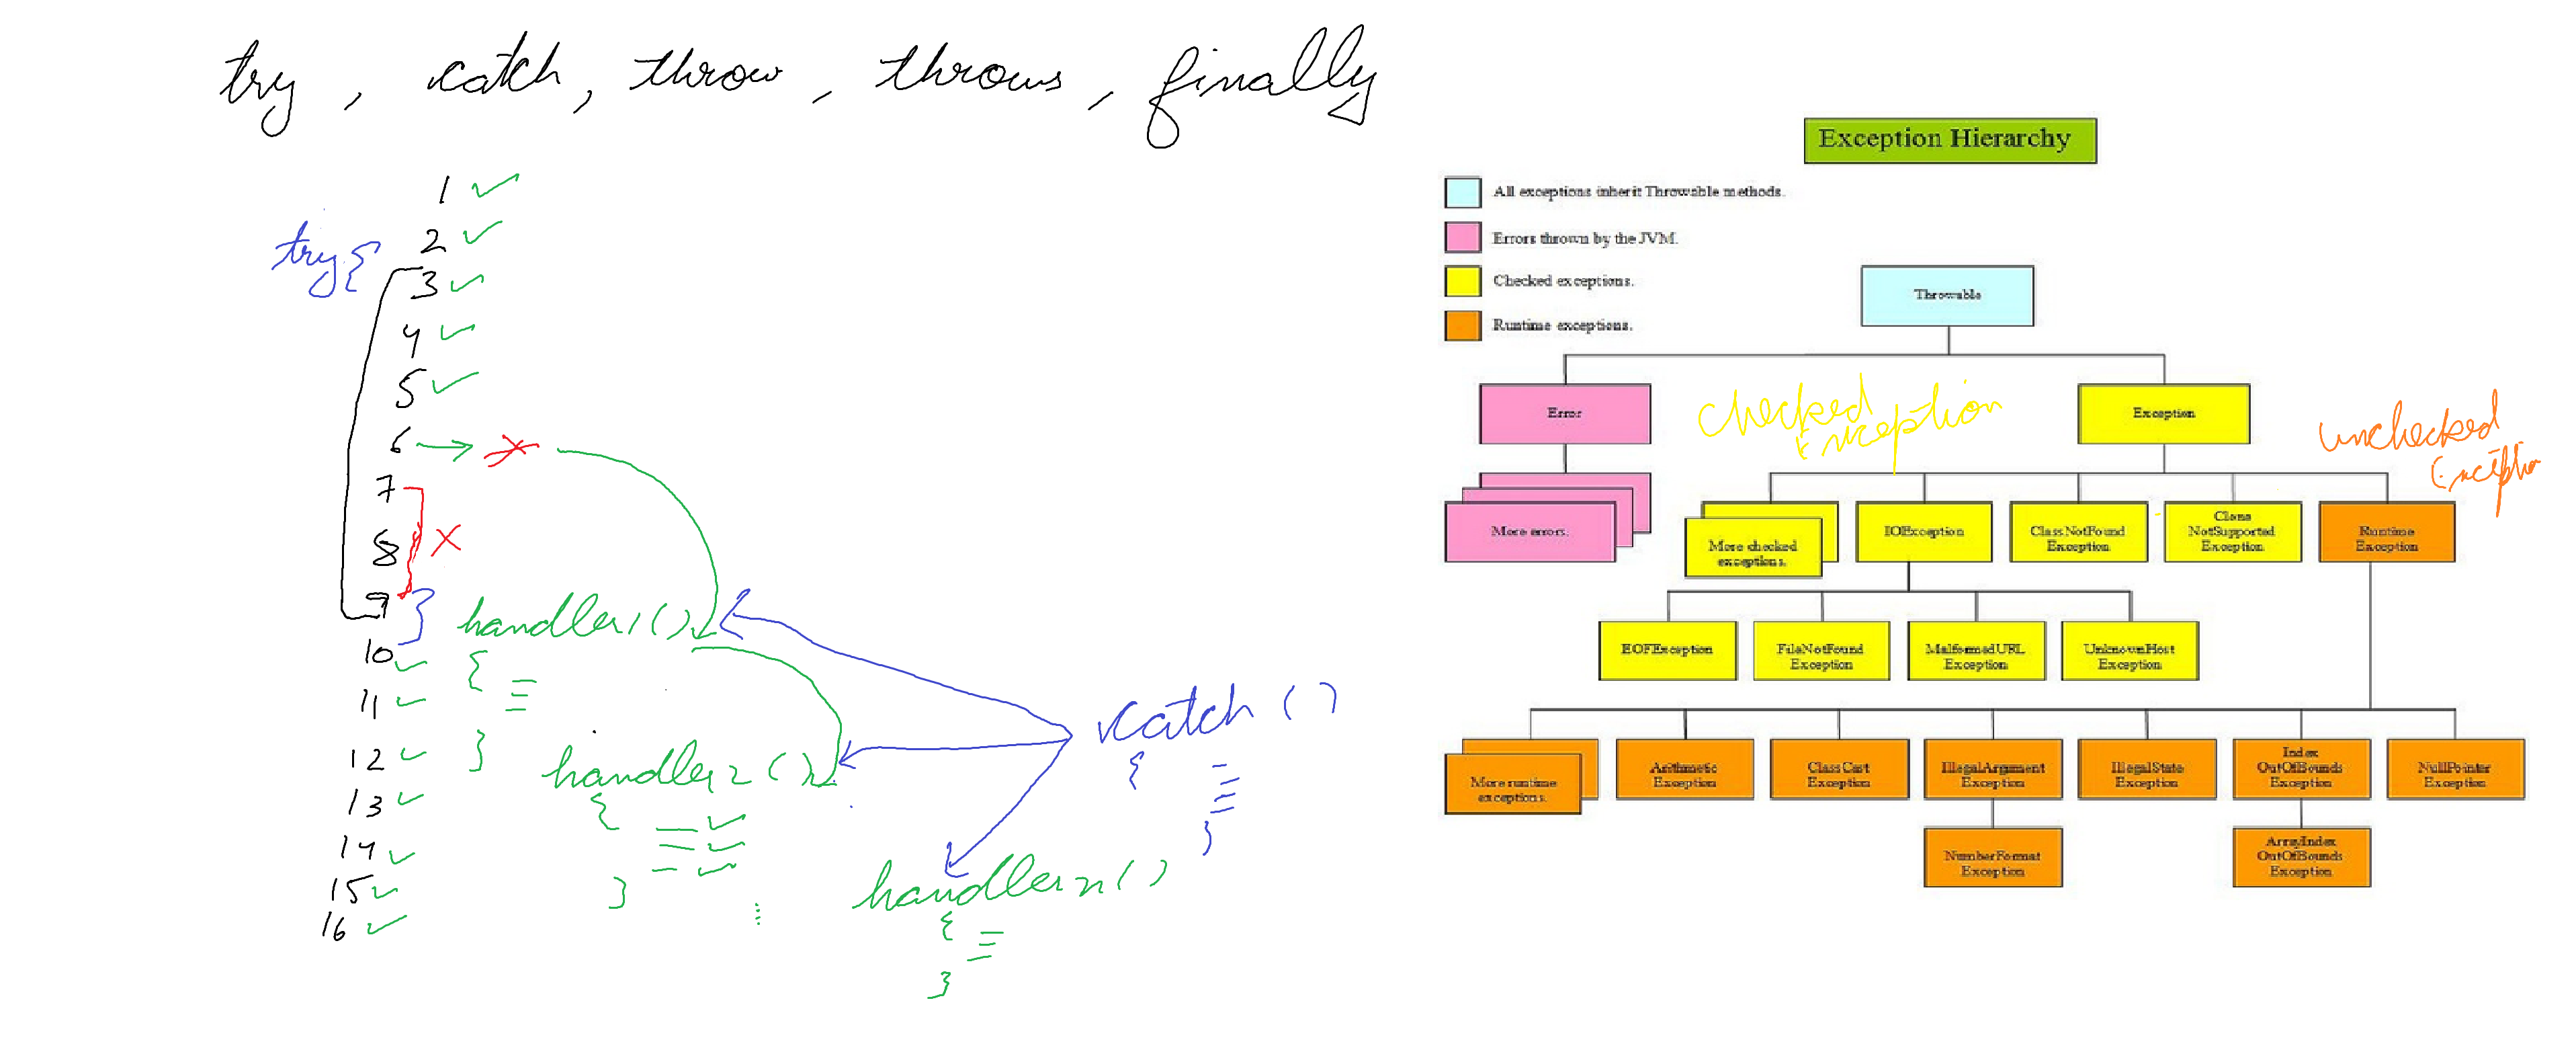 try , catch, throw, throws, finally
1
2
try{
3
4
5
6
7
8
9
} handler1()
10
{
11
}
12
13
14
15
16
handler2()
{
}
handlern()
{
}
catch ()
{
}
Exception Hierarchy
All exceptions inherit Throwable methods.
Errors thrown by the JVM.
Checked exceptions.
Runtime exceptions.
Throwable
Error
checked
Exception
Exception
unchecked
Exception
More errors.
More checked
exceptions.
IOException
ClassNotFound
Exception
Clone
NotSupported
Exception
Runtime
Exception
EOFException
FileNotFound
Exception
MalformedURL
Exception
UnknownHost
Exception
More runtime
exceptions.
Arithmetic
Exception
ClassCast
Exception
IllegalArgument
Exception
IllegalState
Exception
Index
OutOfBounds
Exception
NullPointer
Exception
NumberFormat
Exception
ArrayIndex
OutOfBounds
Exception